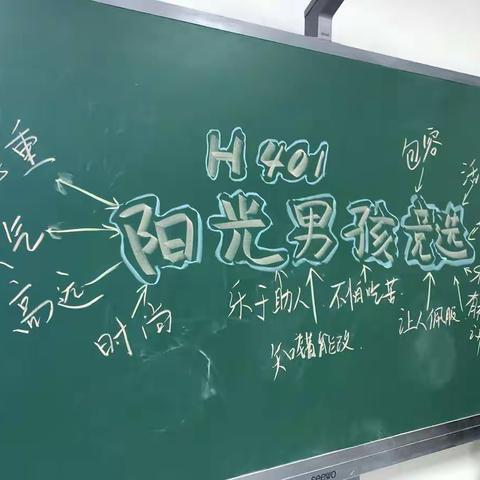 H401
包容
重
阳光男孩竞选
气
高远
时尚
乐于助人
不怕吃苦
让人佩服
知错能改.
seewo